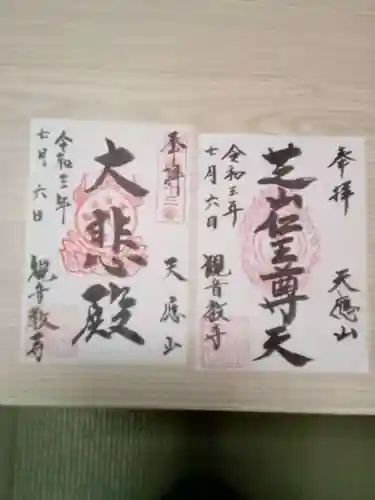 奉拝
天應山
芝山仁王尊天
令和三年
七月六日
観音教寺
奉拝
天應山
大悲殿
令和三年
七月六日
観音教寺